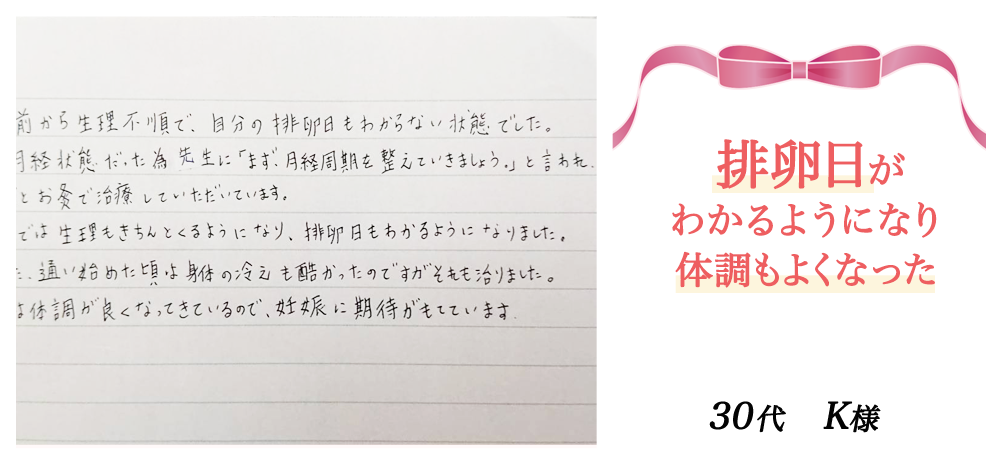 前から生理不順で、自分の排卵日もわからない状態でした。
月経状態だった為先生に「まず、月経周期を整えていきましょう。」と言われ、
とお灸で治療していただいています。
では生理もきちんとくるようになり、排卵日もわかるようになりました。
た、通い始めた頃は身体の冷えも酷かったのですがそれも治りました。
は体調が良くなってきているので、妊娠に期待がもてています。
排卵日が
わかるようになり
体調もよくなった
30代 K様